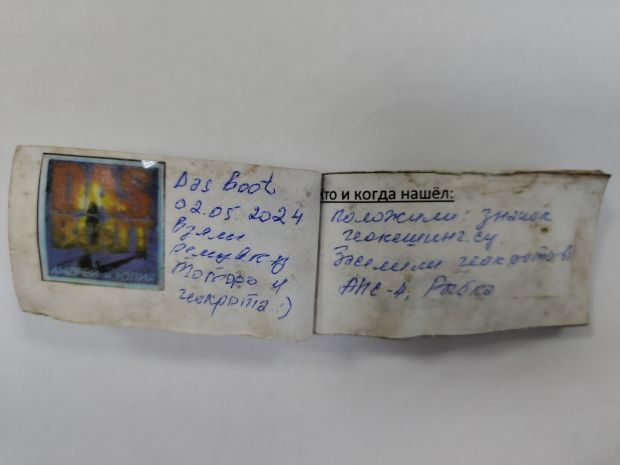 DAS
BOOT
АНДРЕЙ и ЮЛИЯ
Das Boot
02.05.2024
Взяли
ремувку
Тоторо и
геокрота :)
Кто и когда нашёл:
Положили: значок
геокешинг.су.
Заселили геокротов:
АНС-4, Рыбка